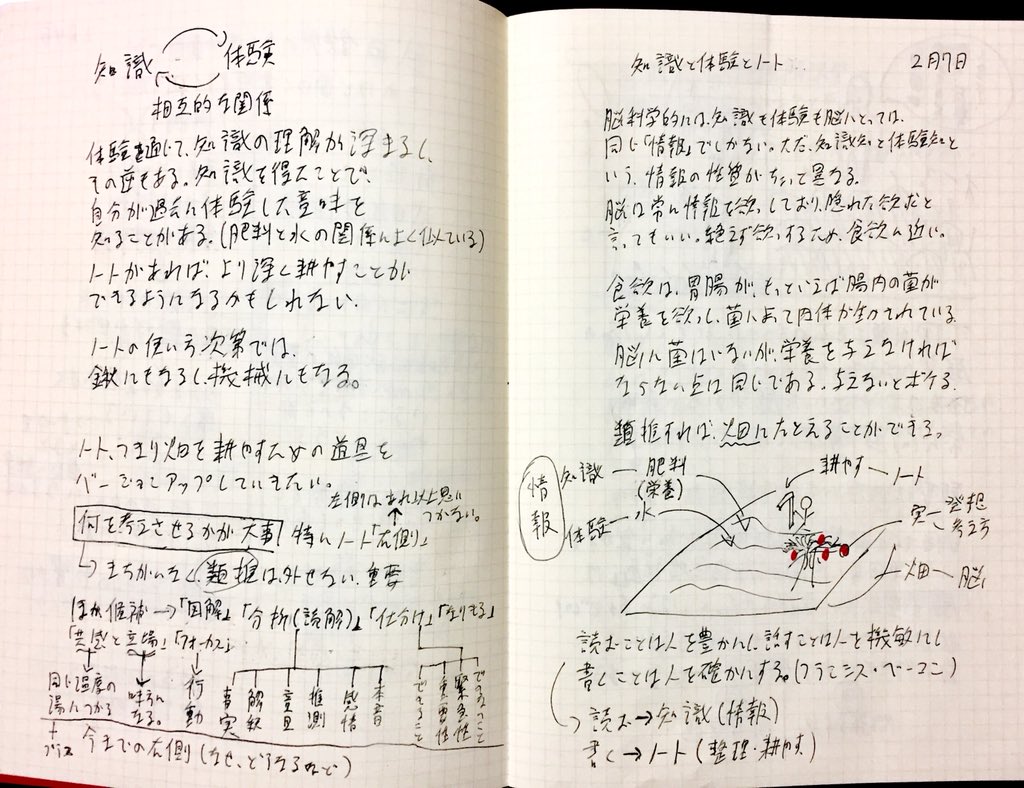 知識 体験
相互的な関係
体験を通じて、知識の理解が深まるし、
その逆もある。知識を得たことで、
自分が過去に体験した意味を
知ることがある。(肥料と水の関係によく似ている)
ノートがあれば、より深く耕すことが
できるようになるかもしれない。
ノートの使い方次第では、
鍬にもなるし、機械にもなる。
ノート、つまり畑を耕すための道具を
バージョンアップしていきたい。
左側はあれ以上思い
つかない。
何を考えさせるかが大事! 特にノート「右側」
まちがいなく類推は外せない。重要
ほか候補→「図解」「分析(読解)」「仕分け」「なりきる」
「共感と立場」「フォーカス」
同じ温度の
湯につかる
味方に
なる。
行動
事実
解釈
意見
推測
感情
本音
できること
重要性
緊急性
できないこと
+
プラス
今までの右側(なぜ、どうなるなど)
知識と体験とノート... 2月7日
脳科学的には、知識も体験も脳にとっては、
同じ「情報」でしかない。ただ、知識知と体験知と
いう、情報の性質がちがって異なる。
脳は常に情報を欲しており、隠れた欲だと
言ってもいい。絶えず欲するため、食欲に近い。
食欲は、胃腸が、もっといえば腸内の菌が
栄養を欲し、菌によって肉体が生かされている。
脳に菌はいないが、栄養を与えなければ
ならない点は同じである。与えないとボケる。
類推すれば、畑にたとえることができる。
情報
知識 — 肥料
(栄養)
体験 — 水
耕やす — ノート
実 — 発想
考え方
畑 — 脳
読むことは人を豊かにし、話すことは人を機敏にし
書くことは人を確かにする。(フランシス・ベーコン)
読む→知識(情報)
書く→ノート(整理・耕やす)